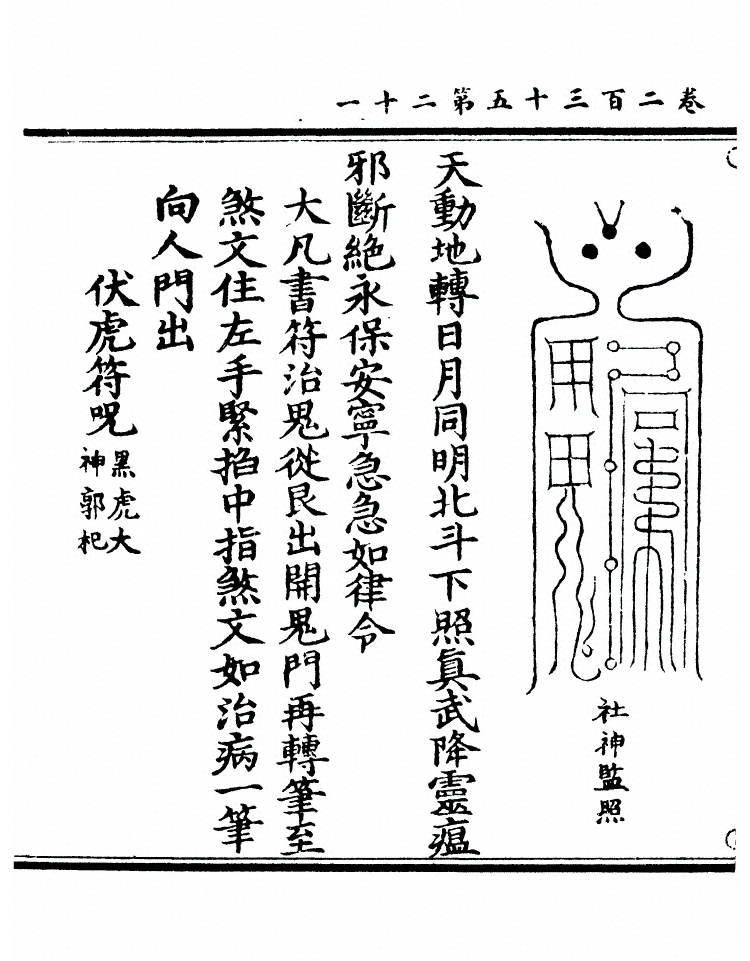 卷二百三十五第二十一
社神監照
天動地轉日月同明北斗下照眞武降靈瘟
邪斷絕永保安寧急急如律令
大凡書符治鬼從艮出開鬼門再轉筆至
煞文住左手緊掐中指煞文如治病一筆
向人門出
伏虎符呪黑虎大
神郭杞